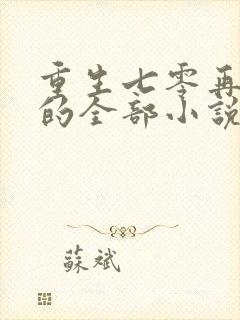 重生七零再
的全部小說
蘇斌